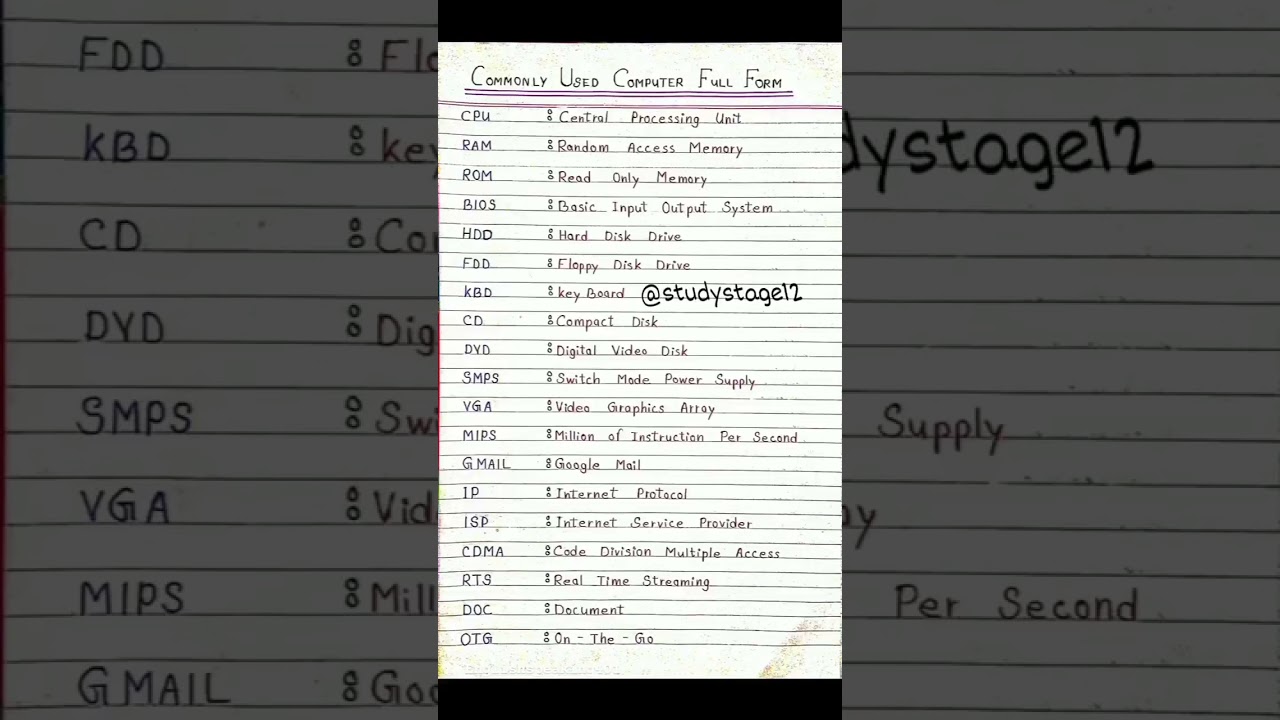 COMMONLY USED COMPUTER FULL FORM
CPU : Central Processing Unit
RAM : Random Access Memory
ROM : Read Only Memory
BIOS : Basic Input Output System
HDD : Hard Disk Drive
FDD : Floppy Disk Drive
KBD : key Board @studystage12
CD : Compact Disk
DVD : Digital Video Disk
SMPS : Switch Mode Power Supply
VGA : Video Graphics Array
MIPS : Million of Instruction Per Second
GMAIL : Google Mail
IP : Internet Protocol
ISP : Internet Service Provider
CDMA : Code Division Multiple Access
RTS : Real Time Streaming
DOC : Document
OTG : On - The - Go